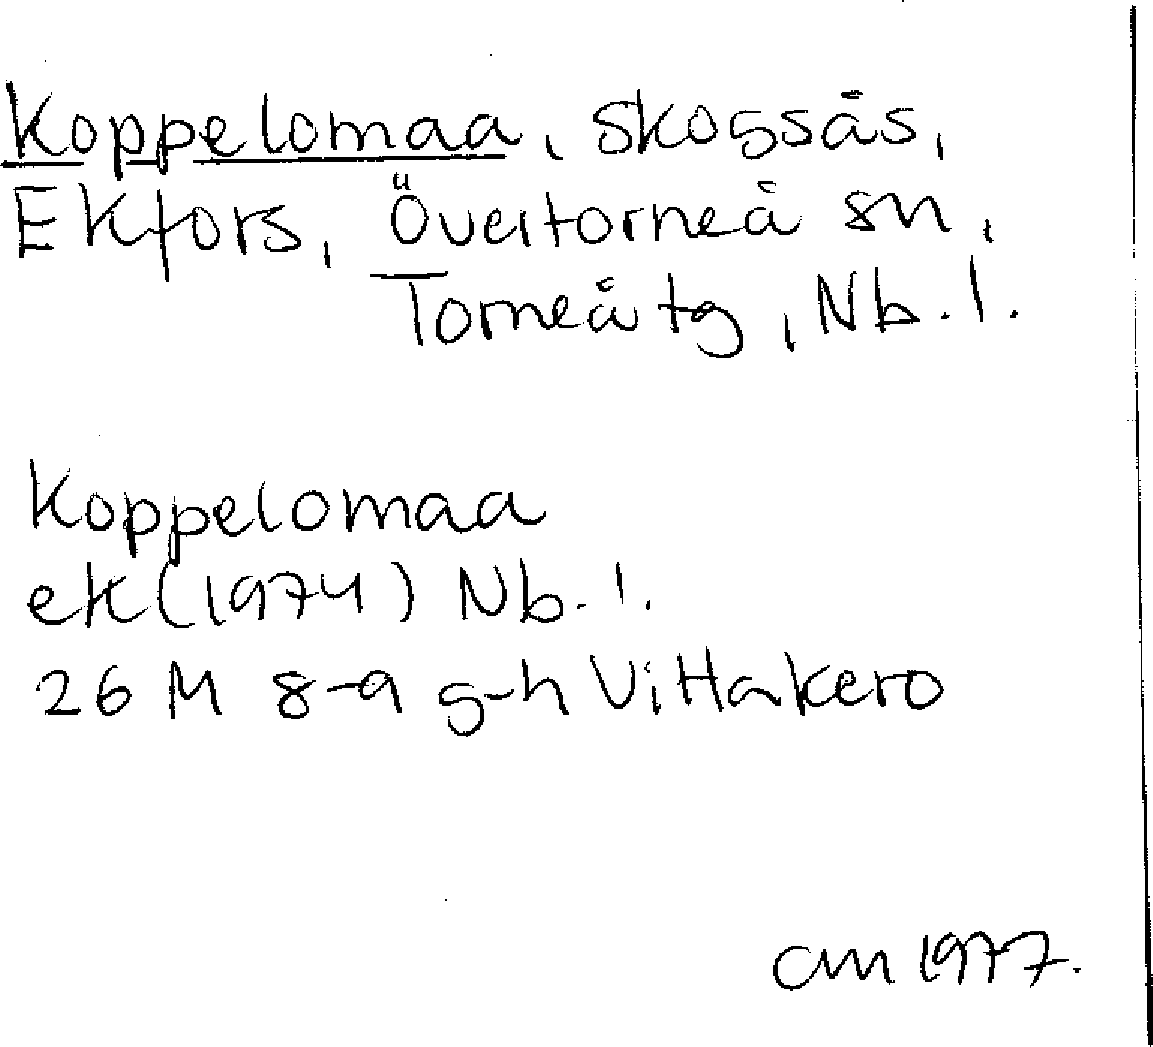 Koppelomaa, skogsås,
Ekfors, Övertorneå sn,
Torneå tg, Nb. l.
Koppelomaa
ek (1974) Nb. l.
26 M 8-9 g-h Vittakero
am 1977.